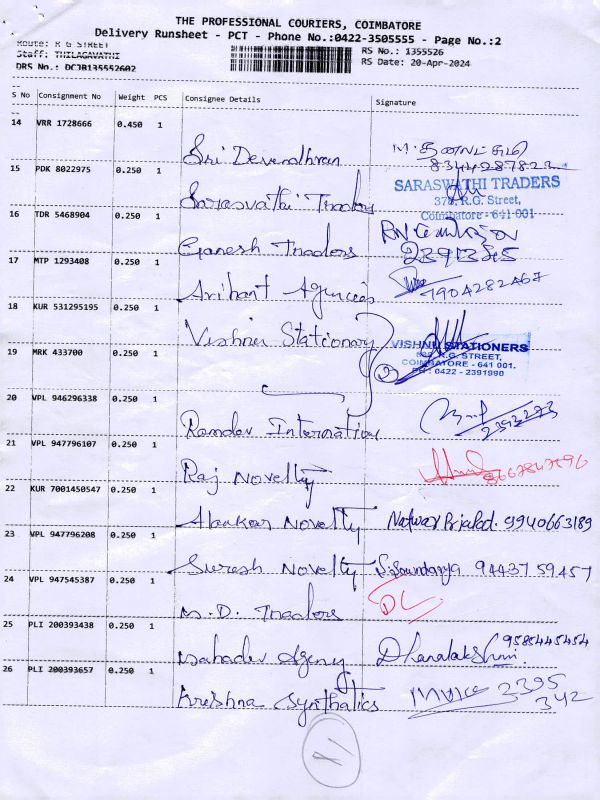 THE PROFESSIONAL COURIERS, COIMBATORE
Delivery Runsheet - PCT - Phone No.:0422-3505555 - Page No.:2
Route: R G STREET
RS No.: 1355526
Staff: THILAGAVATHI
RS Date: 20-Apr-2024
DRS No.: DCJB135552602
S No Consignment No Weight PCS Consignee Details Signature
14 VRR 1728666 0.450 1
Sri Devendhran
8344287823
15 PDK 8022975 0.250 1
Sarasvathi Traders
SARASWATHI TRADERS
378, R.G. Street,
Coimbatore - 641 001
16 TDR 5468904 0.250 1
Ganesh Traders
2391345
17 MTP 1293408 0.250 1
Arihant Agencies
7904282467
18 KUR 531295195 0.250 1
Vishnu Stationary
VISHNU STATIONERS
R.G. STREET,
COIMBATORE - 641 001.
PH : 0422 - 2391990
19 MRK 433700 0.250 1
3
20 VPL 946296338 0.250 1
Ramdev Internation
2392293
21 VPL 947796107 0.250 1
Raj Novelty
8667847596
22 KUR 7001450547 0.250 1
Alankar Novelty
9940663189
23 VPL 947796208 0.250 1
Suresh Novelty
S.Soundarya 9443759457
24 VPL 947545387 0.250 1
M.D. Traders
DC
25 PLI 200393438 0.250 1
Mahadev Agency
Dhanalakshmi 9585445454
26 PLI 200393657 0.250 1
Krishna Synthatics
2395
342